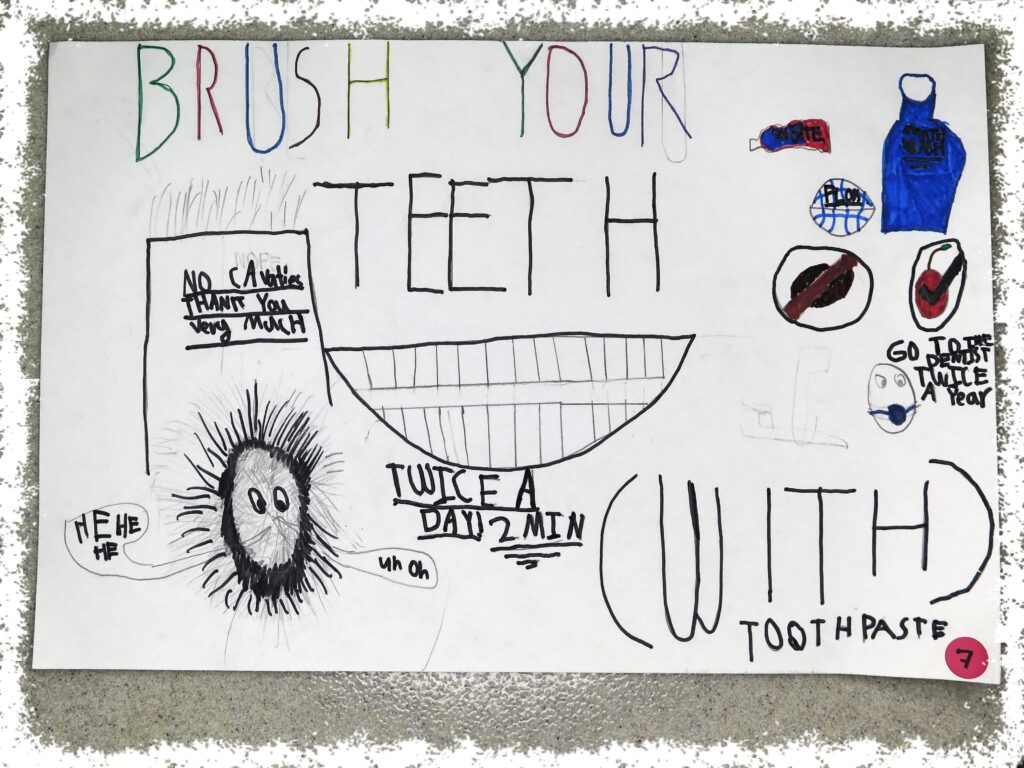 BRUSH YOUR
TEETH
NO CAvaties
THANK You
very MUCH
HEHE
HE
uh Oh
TWICE A
DAY! 2 MIN
MOUTH
WASH
FLOS
GO TO THE
DENTIST
TWICE
A Year
(WITH)
TOOTHPASTE
7